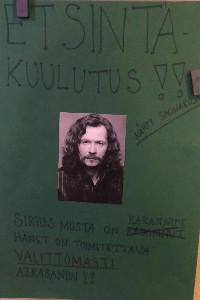 ETSINTÄ-
KUULUTUS !!
SIRIUS MUSTA ON KARANNUT
HÄNET ON TOIMITETTAVA
VÄLITTÖMÄSTI
AZKABANIIN !!